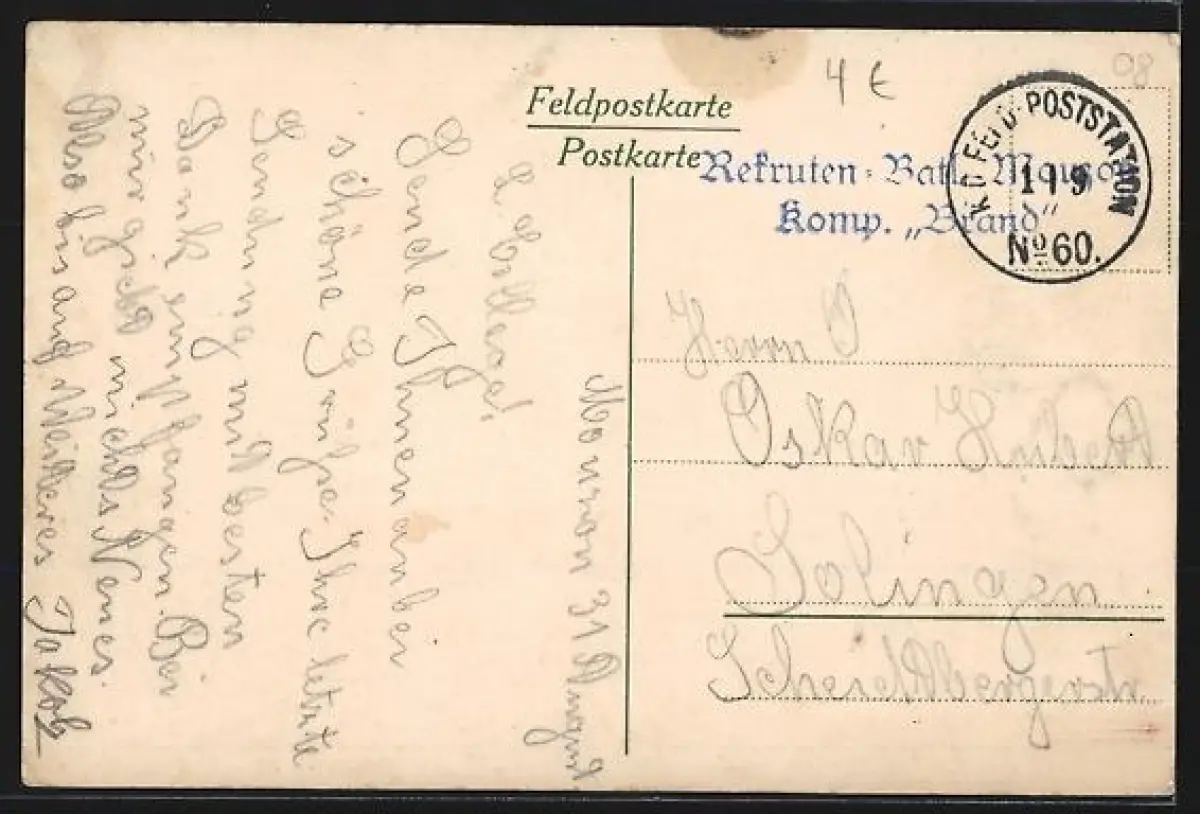 Feldpostkarte
Postkarte
4 €
08
Rekruten-Batl. Mouzon
Komp. „Brand"
K.D. FELD-POSTSTATION
1 9
No 60.
Herrn O
Oskar Hubert
Solingen
Mouzon 31 August
L. College!
Sende Ihnen anbei
schöne Grüße. Ihre letzte
Sendung mit besten
Dank empfangen. Bei
mir giebt nichts Neues.
Also bis auf Weiteres Jakob